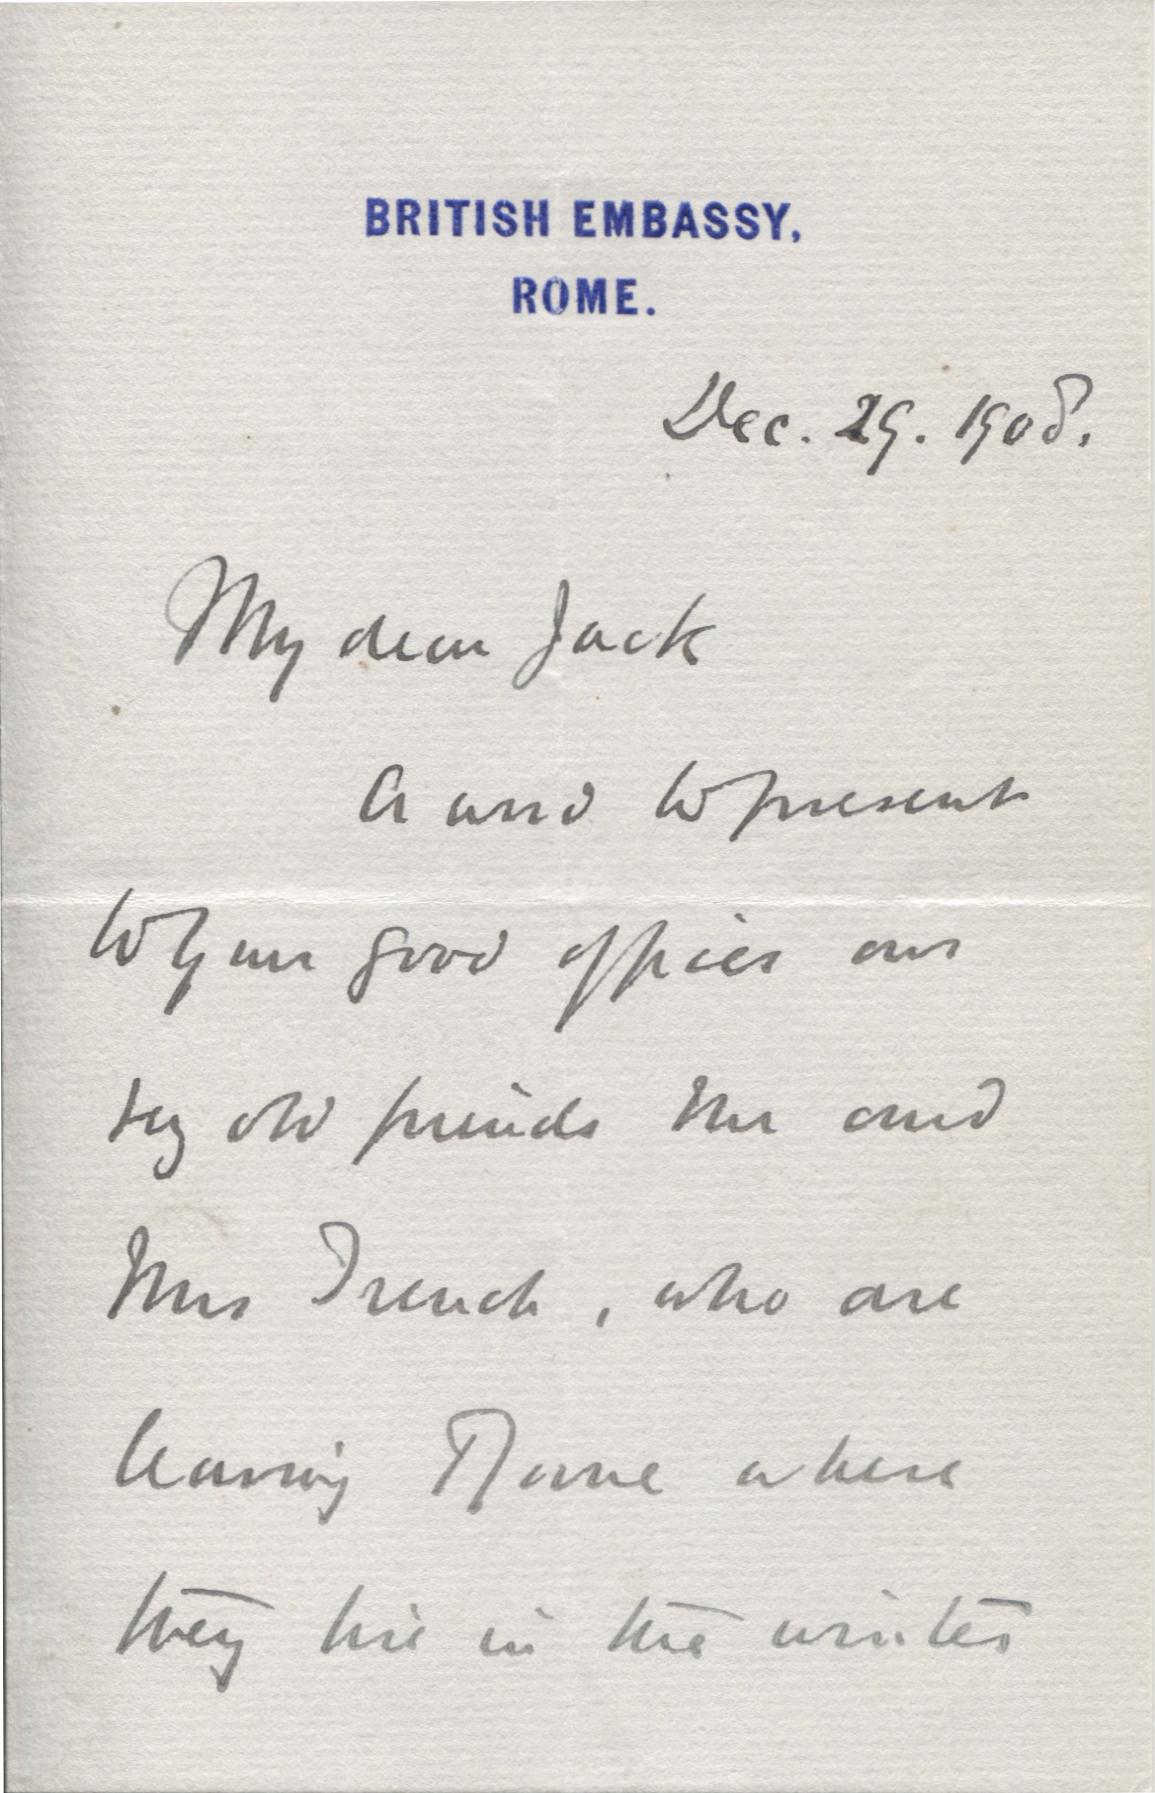 BRITISH EMBASSY,
ROME.
Dec. 29. 1908.
My dear Jack
A word to present
to your good offices our
very old friends Mr and
Mrs French, who are
leaving Rome where
they live in the winter